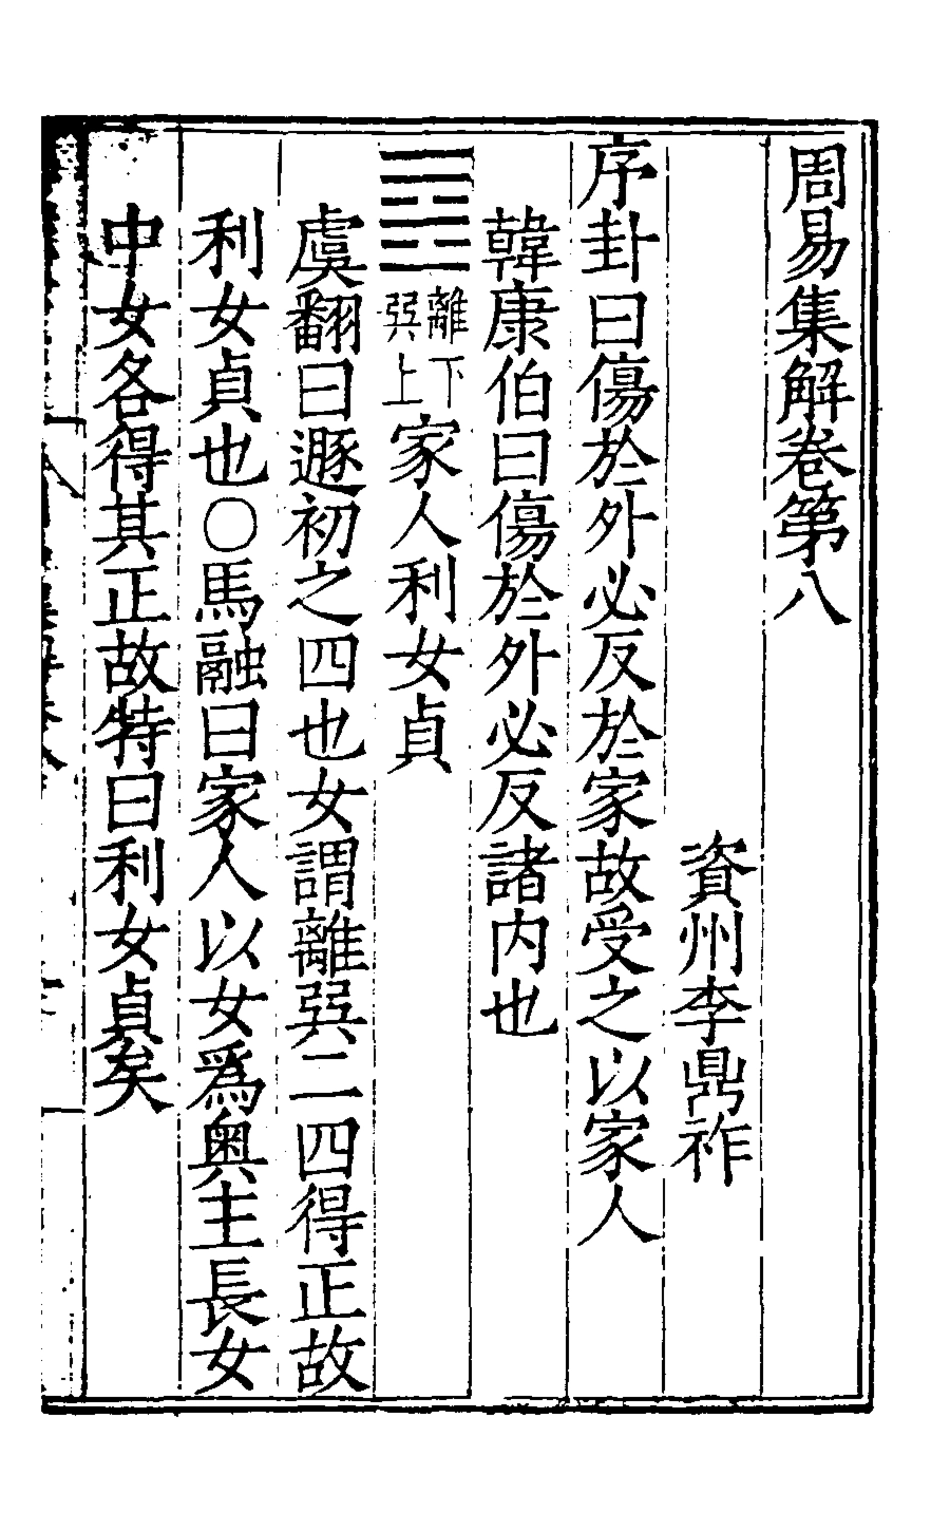 周易集解卷第八
資州李鼎祚
序卦曰傷於外必反於家故受之以家人
韓康伯曰傷於外必反諸内也
䷤離下巽上家人利女貞
虞翻曰遯初之四也女謂離巽二四得正故
利女貞也○馬融曰家人以女爲奥主長女
中女各得其正故特曰利女貞矣